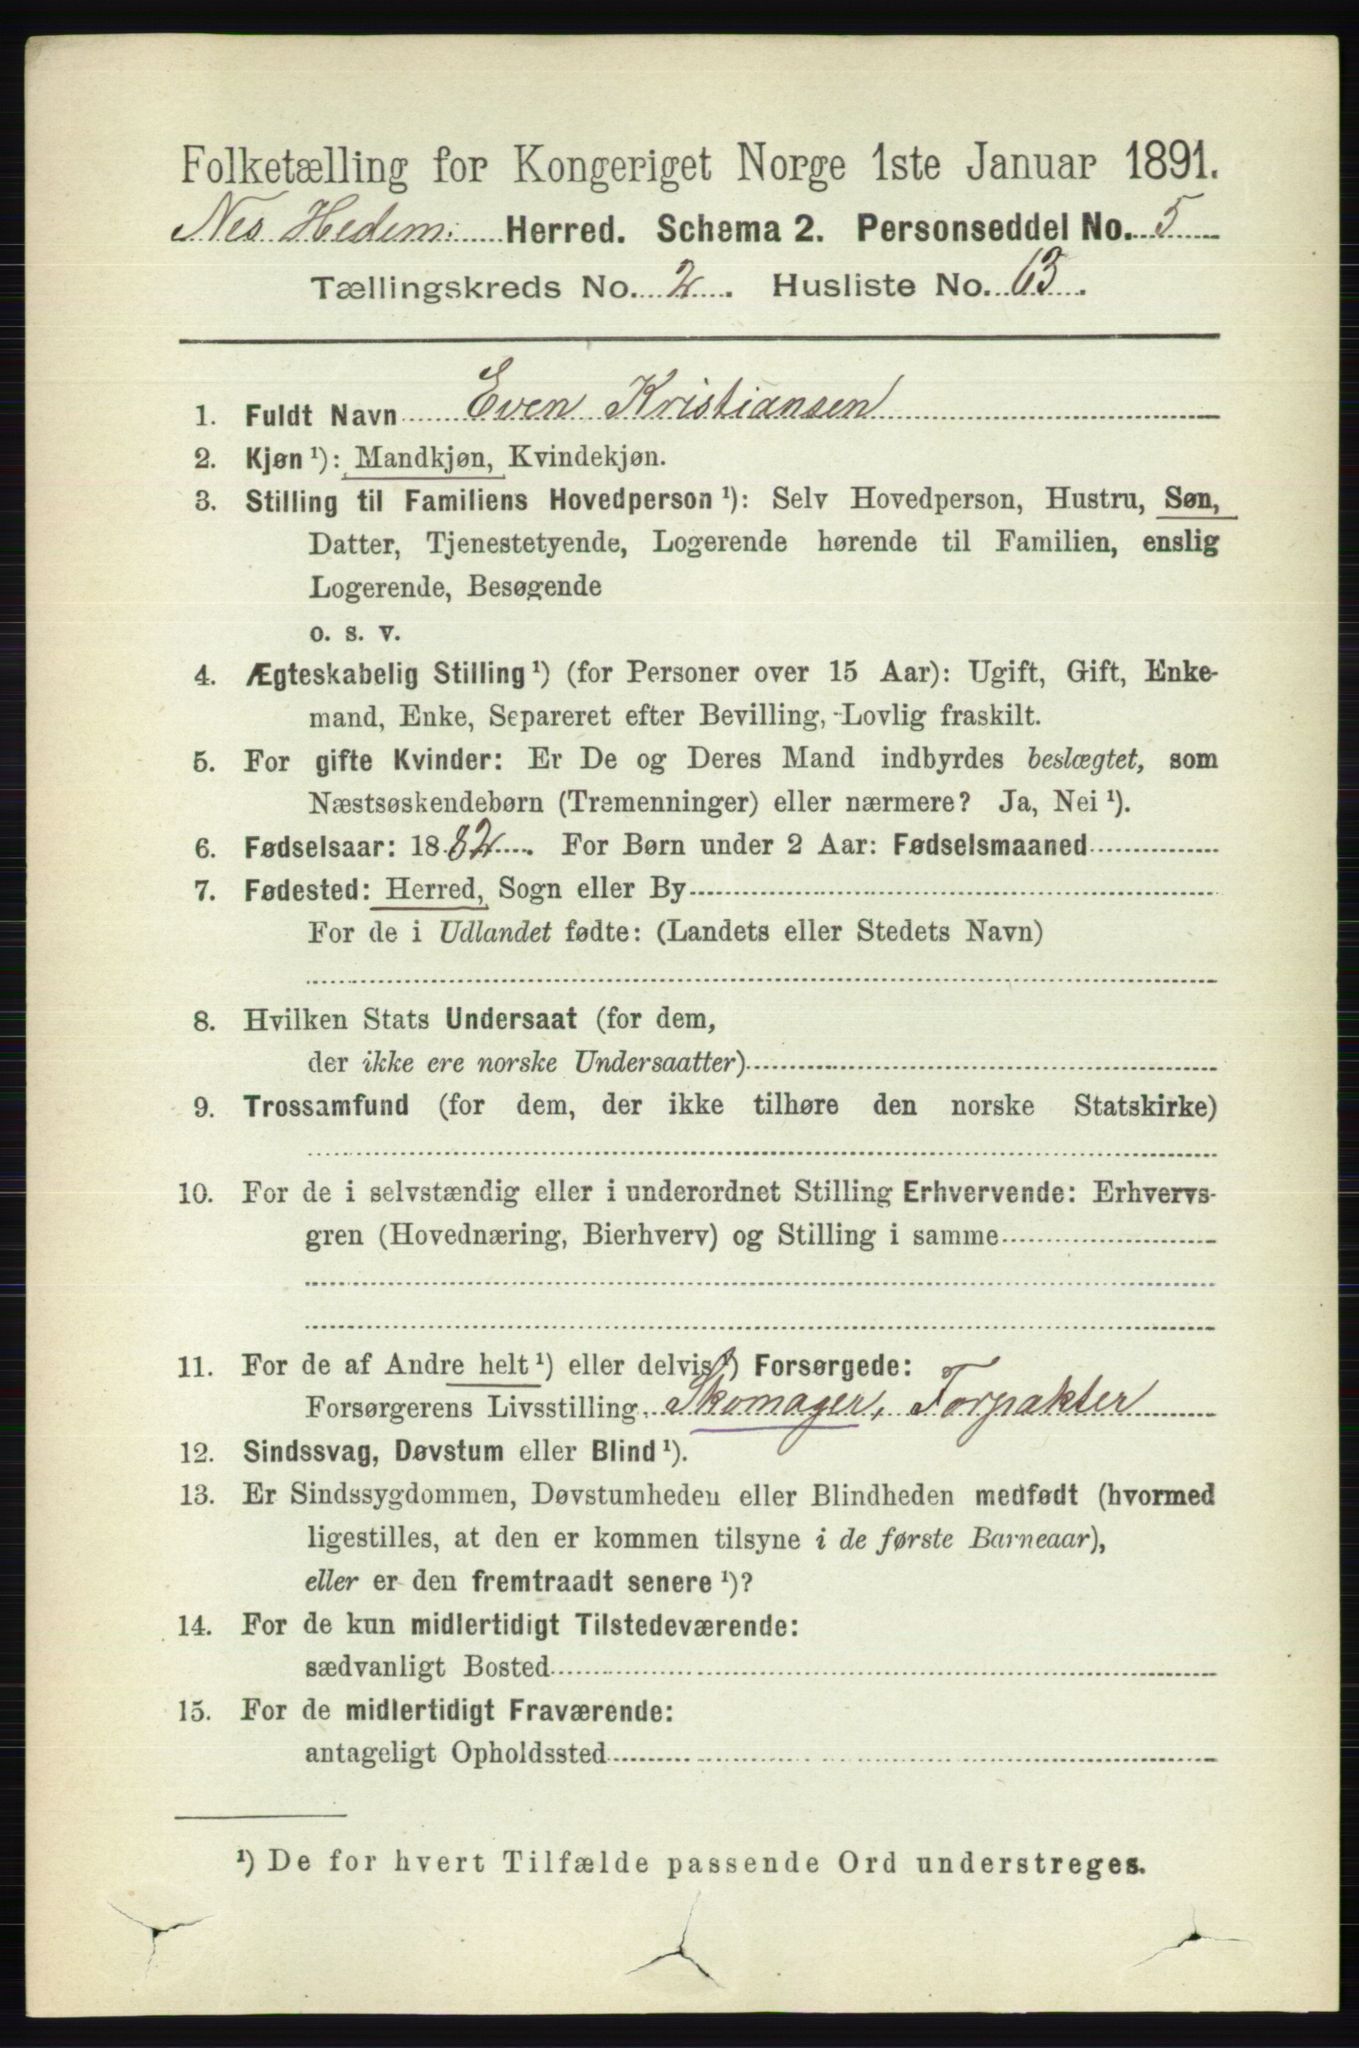 Folketælling for Kongeriget Norge 1ste Januar 1891.
Nes Hedem: Herred. Schema 2. Personseddel No. 5
Tællingskreds No. 2. Husliste No. 63.
1. Fuldt Navn Even Kristiansen
2. Kjøn ¹): Mandkjøn, Kvindekjøn.
3. Stilling til Familiens Hovedperson ¹): Selv Hovedperson, Hustru, Søn,
Datter, Tjenestetyende, Logerende hørende til Familien, enslig
Logerende, Besøgende
o. s. v.
4. Ægteskabelig Stilling ¹) (for Personer over 15 Aar): Ugift, Gift, Enke-
mand, Enke, Separeret efter Bevilling, Lovlig fraskilt.
5. For gifte Kvinder: Er De og Deres Mand indbyrdes beslægtet, som
Næstsøskendebørn (Tremenninger) eller nærmere? Ja, Nei ¹).
6. Fødselsaar: 1882. For Børn under 2 Aar: Fødselsmaaned
7. Fødested: Herred, Sogn eller By
For de i Udlandet fødte: (Landets eller Stedets Navn)
8. Hvilken Stats Undersaat (for dem,
der ikke ere norske Undersaatter)
9. Trossamfund (for dem, der ikke tilhøre den norske Statskirke)
10. For de i selvstændig eller i underordnet Stilling Erhvervende: Erhvervs-
gren (Hovednæring, Bierhverv) og Stilling i samme
11. For de af Andre helt ¹) eller delvis ¹) Forsørgede:
Forsørgerens Livsstilling Skomager, Forpakter
12. Sindssvag, Døvstum eller Blind ¹).
13. Er Sindssygdommen, Døvstumheden eller Blindheden medfødt (hvormed
ligestilles, at den er kommen tilsyne i de første Barneaar),
eller er den fremtraadt senere ¹)?
14. For de kun midlertidigt Tilstedeværende:
sædvanligt Bosted
15. For de midlertidigt Fraværende:
antageligt Opholdssted
¹) De for hvert Tilfælde passende Ord understreges.